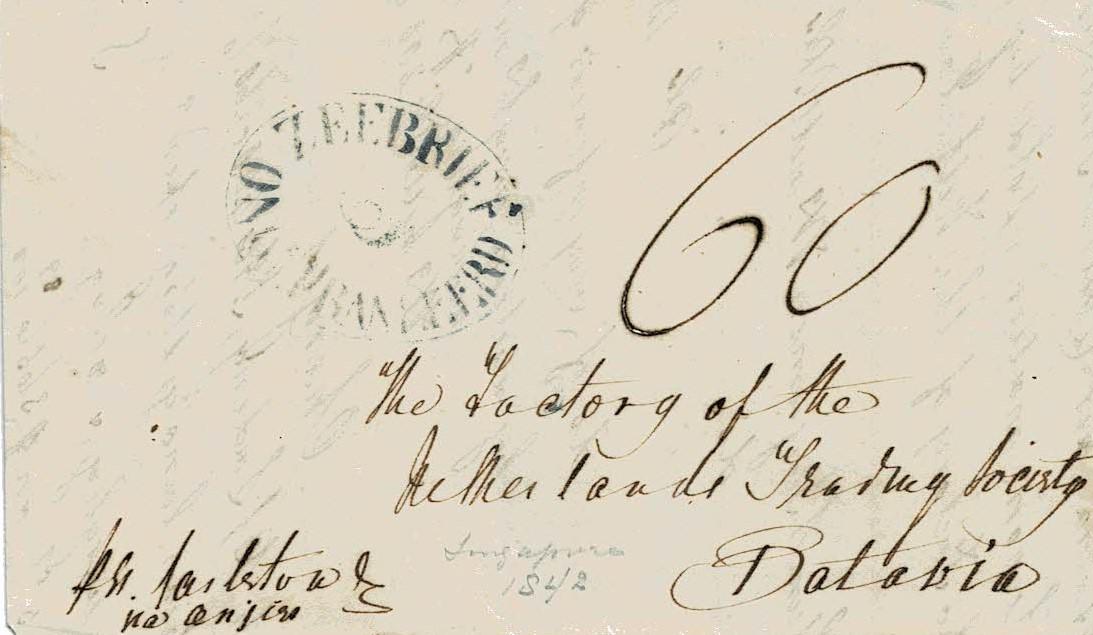 ZEEBRIEF
ONGEFRANKEERD
60
The Factory of the
Netherlands Trading Society
Batavia
Singapore
1842
per
via anjer